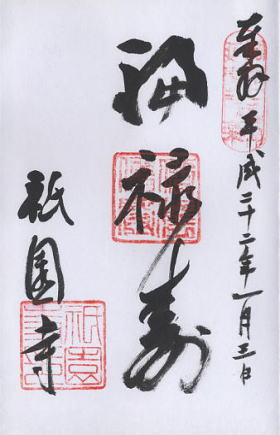 奉拝 平成二十二年一月三日
福禄寿
祇園寺